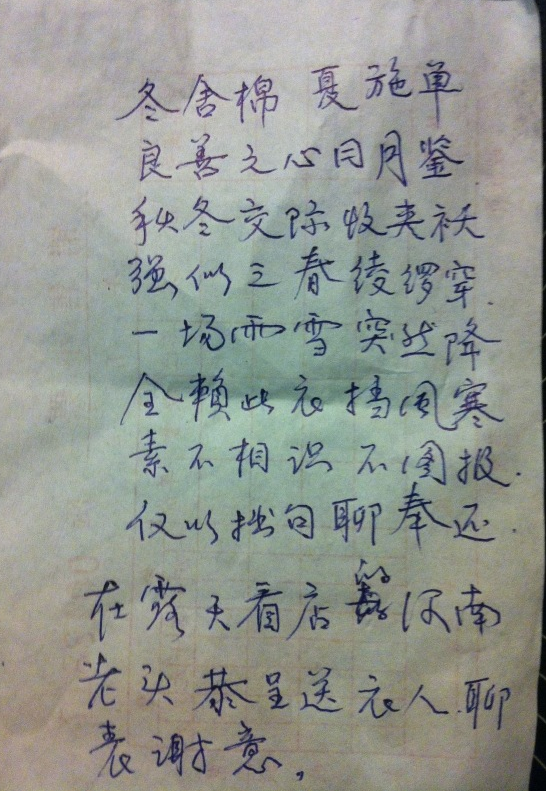 冬舍棉 夏施单
良善之心日月鉴
秋冬交际收夹袄
强似三春绫缪穿
一场雨雪突然降
全赖此衣挡风寒
素不相识不图报.
仅以拙句聊奉还.
在露天看店 河南
老头恭呈送衣人聊
表谢意。